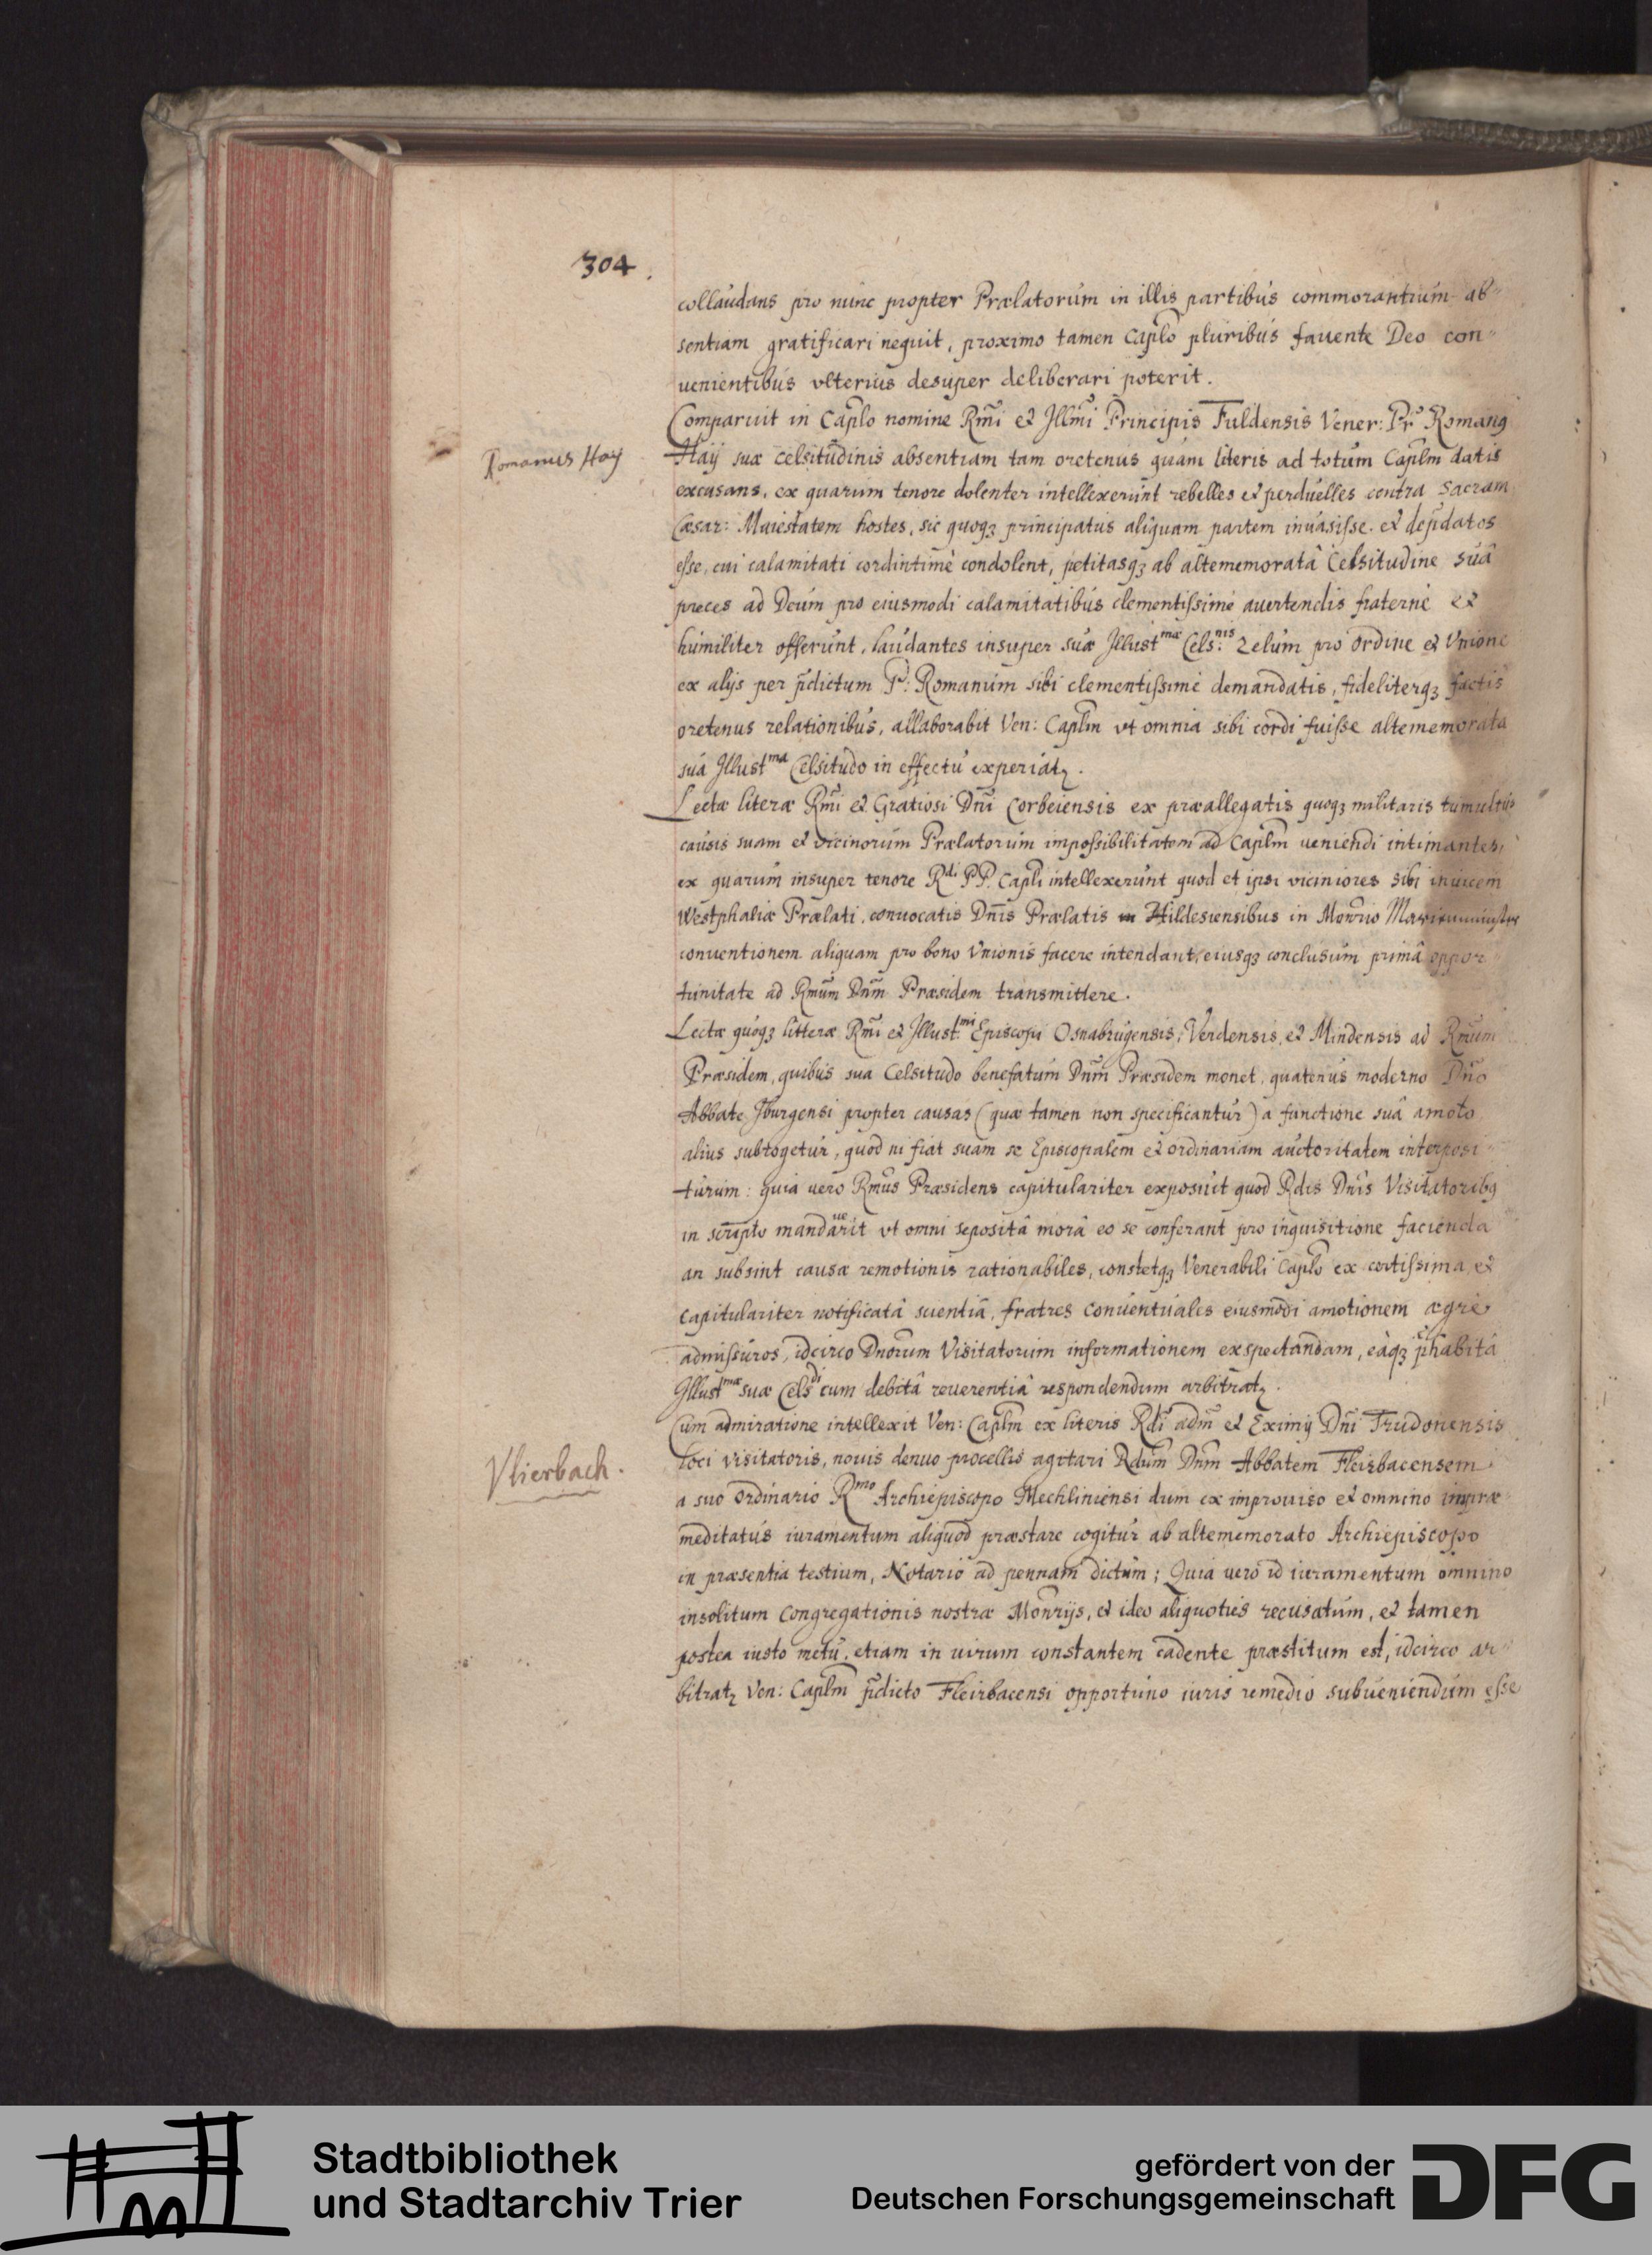 304.
collaudans pro nunc propter Prælatorum in illis partibus commorantium ab-
sentiam gratificari nequit, proximo tamen Caplo pluribus fauente Deo con-
uenientibus vlterius desuper deliberari poterit.
Comparuit in Caplo nomine Rmi et Jllmi Principis Fuldensis Vener: Pr Romang
Romanus Hay
Haÿ suæ celsitudinis absentiam tam oretenus quàm literis ad totum Caplm datis
excusans, ex quarum tenore dolenter intellexerunt rebelles et perduelles contra Sacram
Cæsar: Maiestatem hostes, sic quoqȝ principatus aliquam partem inuasisse et depdatos
esse, cui calamitati cordintimè condolent, petitasqȝ ab altememoratâ Celsitudine suâ
preces ad Deum pro eiusmodi calamitatibus clementissimè auertendis fraternè et
humiliter offerunt, laudantes insuper suæ Jllustmæ Cels:nis zelum pro ordine et Vnione
ex alijs per pdictum P: Romanum sibi clementissimè demandatis, fideliterqȝ factis
oretenus relationibus, allaborabit Ven: Caplm vt omnia sibi cordi fuisse altememorata
sua Jllustma Celsitudo in effectu experiatȝ.
Lectæ literæ Rmi et Gratiosi Dni Corbeiensis ex præallegatis quoqȝ militaris tumultus
causis suam et vicinorum Prælatorum impossibilitatem ad Caplm ueniendi intimantes,
ex quarum insuper tenore Rdi PP. Capli intellexerunt quod et ipsi viciniores sibi inuicem
Westphaliæ Prælati, conuocatis Dnis Prælatis in Hildesiensibus in Monrio
conuentionem aliquam pro bono Vnionis facere intendant, eiusqȝ conclusum primâ oppor-
tunitate ad Rmum Dnm Præsidem transmittere.
Lectæ quoqȝ litteræ Rmi et Jllust:mi Episcopi Osnabrugensis, Verdensis, et Mindensis ad Rmum
Præsidem, quibus sua Celsitudo benefatum Dnm Præsidem monet, quatenus moderno Dno
Abbate Jburgensi propter causas (quæ tamen non specificantur) a functione suâ amoto
alius subrogetur, quod ni fiat suam se Episcopalem et ordinariam auctoritatem interposi-
turum: quia uero Rmus Præsidens capitulariter exposuit quod Rdis Dnis Visitatoribg
in scripto mandauerit vt omni sepositâ morâ eo se conferant pro inquisitione facienda
an subsint causæ remotionis rationabiles, constetqȝ Venerabili Caplo ex certissima, et
capitulariter notificatâ scientiâ, fratres conuentuales eiusmodi amotionem ægrè
admissuros, idcirco Dnorum Visitatorum informationem exspectandam, eâqȝ phabitâ
Jllustmæ suæ Celsdi cum debitâ reuerentiâ respondendum arbitratȝ.
Cum admiratione intellexit Ven: Caplm ex literis Rdi adm et Eximij Dni Trudonensis
Vlierbach.
loci visitatoris, nouis denuo procellis agitari Rdum Dnm Abbatem Fleirbacensem
a suo Ordinario Rmo Archiepiscopo Mechliniensi dum ex improuiso et omnino impræ-
meditatus iuramentum aliquod præstare cogitur ab altememorato Archiepiscopo
in præsentia testium, Notario ad pennam dictum; Quia uero id iuramentum omnino
insolitum Congregationis nostræ Monrijs, et ideo aliquoties recusatum, et tamen
postea iusto metu, etiam in uirum constantem cadente præstitum est, idcirco ar-
bitratȝ Ven: Caplm pdicto Fleirbacensi opportuno iuris remedio subueniendum esse
Stadtbibliothek
und Stadtarchiv Trier
gefördert von der
Deutschen Forschungsgemeinschaft
DFG